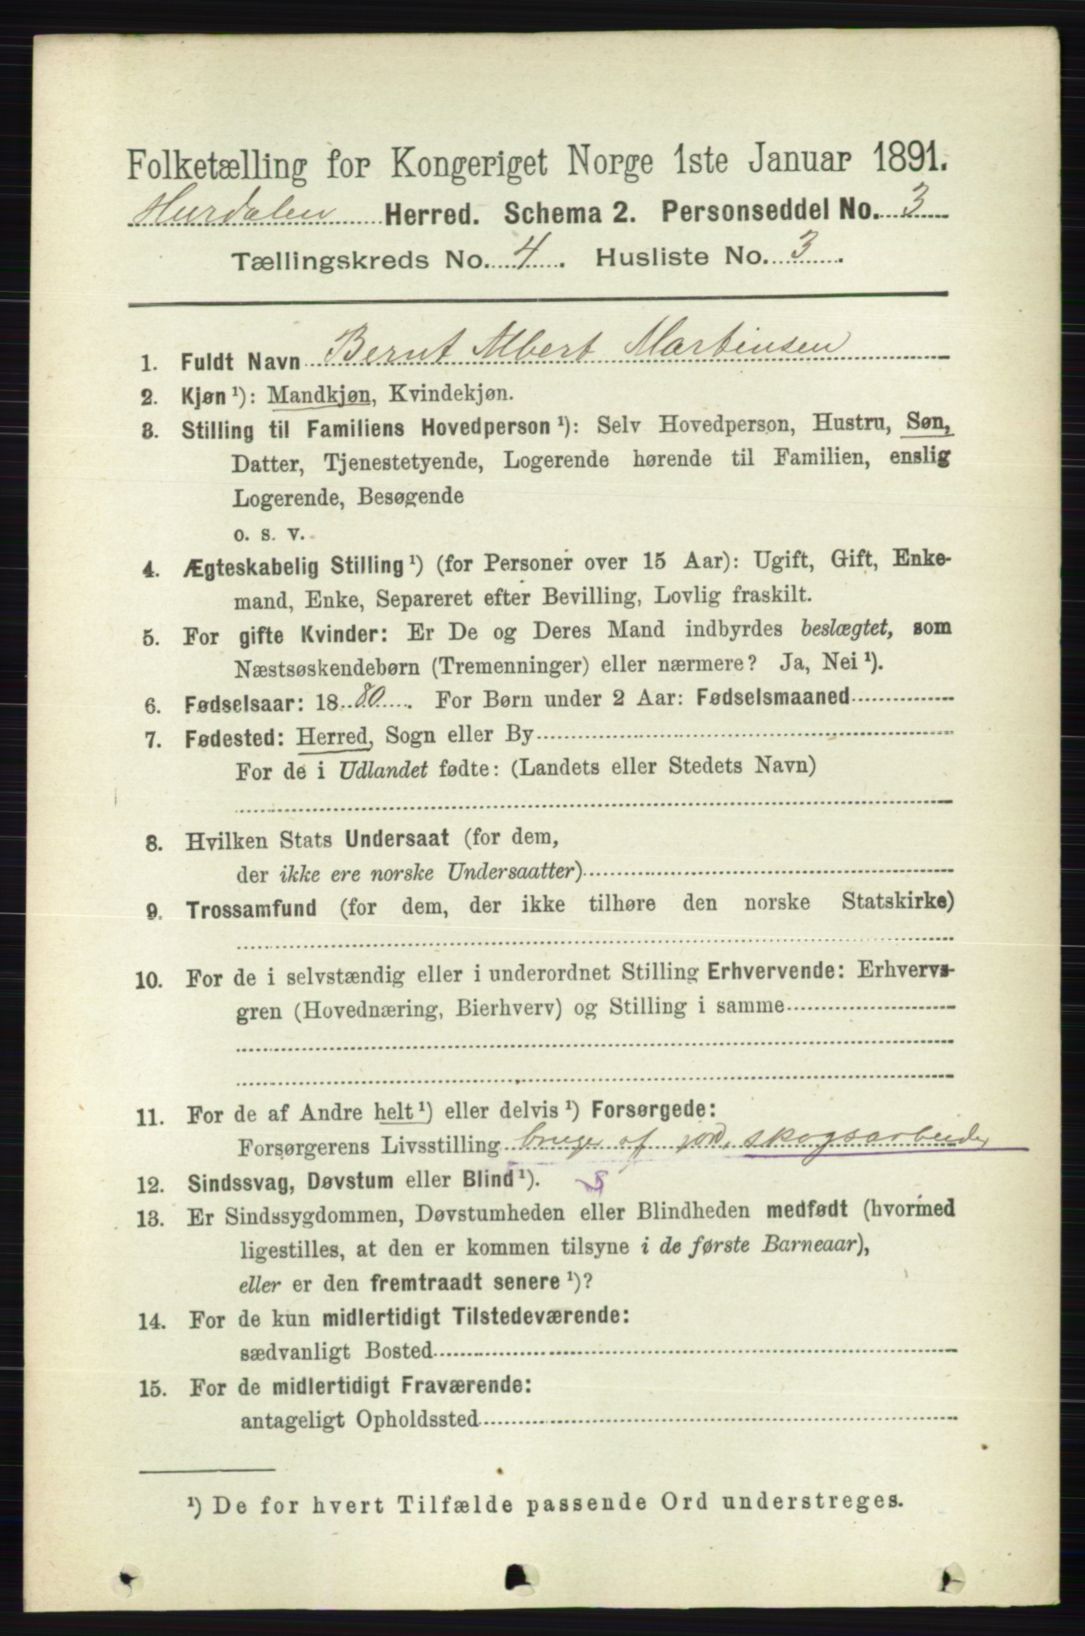 Folketælling for Kongeriget Norge 1ste Januar 1891.
Hurdalen Herred. Schema 2. Personseddel No. 3
Tællingskreds No. 4. Husliste No. 3.
1. Fuldt Navn Bernt Albert Martinsen
2. Kjøn ¹): Mandkjøn, Kvindekjøn.
3. Stilling til Familiens Hovedperson ¹): Selv Hovedperson, Hustru, Søn,
Datter, Tjenestetyende, Logerende hørende til Familien, enslig
Logerende, Besøgende
o. s. v.
4. Ægteskabelig Stilling ¹) (for Personer over 15 Aar): Ugift, Gift, Enke-
mand, Enke, Separeret efter Bevilling, Lovlig fraskilt.
5. For gifte Kvinder: Er De og Deres Mand indbyrdes beslægtet, som
Næstsøskendebørn (Tremenninger) eller nærmere? Ja, Nei ¹).
6. Fødselsaar: 1880. For Børn under 2 Aar: Fødselsmaaned
7. Fødested: Herred, Sogn eller By
For de i Udlandet fødte: (Landets eller Stedets Navn)
8. Hvilken Stats Undersaat (for dem,
der ikke ere norske Undersaatter)
9. Trossamfund (for dem, der ikke tilhøre den norske Statskirke)
10. For de i selvstændig eller i underordnet Stilling Erhvervende: Erhvervs-
gren (Hovednæring, Bierhverv) og Stilling i samme
11. For de af Andre helt ¹) eller delvis ¹) Forsørgede:
Forsørgerens Livsstilling bruger af jord, skogsarbeider
12. Sindssvag, Døvstum eller Blind ¹).
13. Er Sindssygdommen, Døvstumheden eller Blindheden medfødt (hvormed
ligestilles, at den er kommen tilsyne i de første Barneaar),
eller er den fremtraadt senere ¹)?
14. For de kun midlertidigt Tilstedeværende:
sædvanligt Bosted
15. For de midlertidigt Fraværende:
antageligt Opholdssted
¹) De for hvert Tilfælde passende Ord understreges.